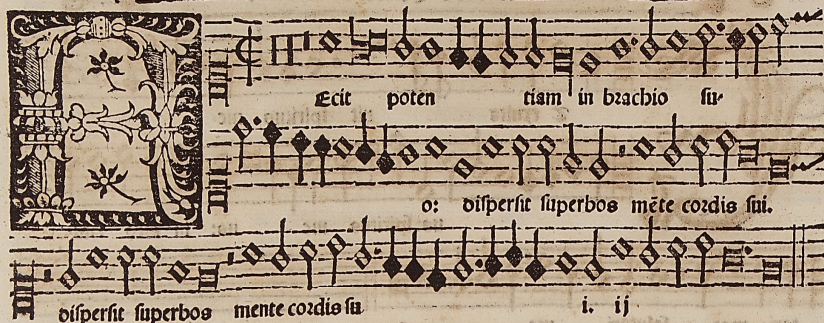 FEcit poten tiam in brachio su-
o: dispersit superbos mẽte cordis sui.
dispersit superbos mente cordis su i. ij